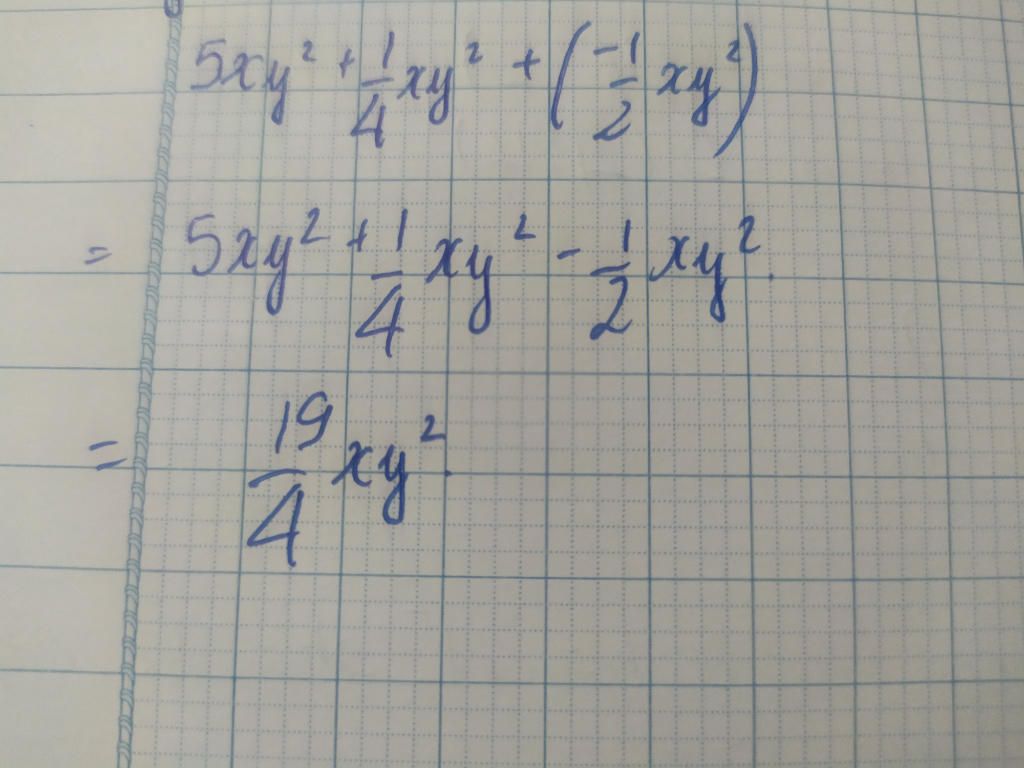 5xy² + 1/4 xy² + (-1/2 xy²)
= 5xy² + 1/4 xy² - 1/2 xy².
= 19/4 xy².